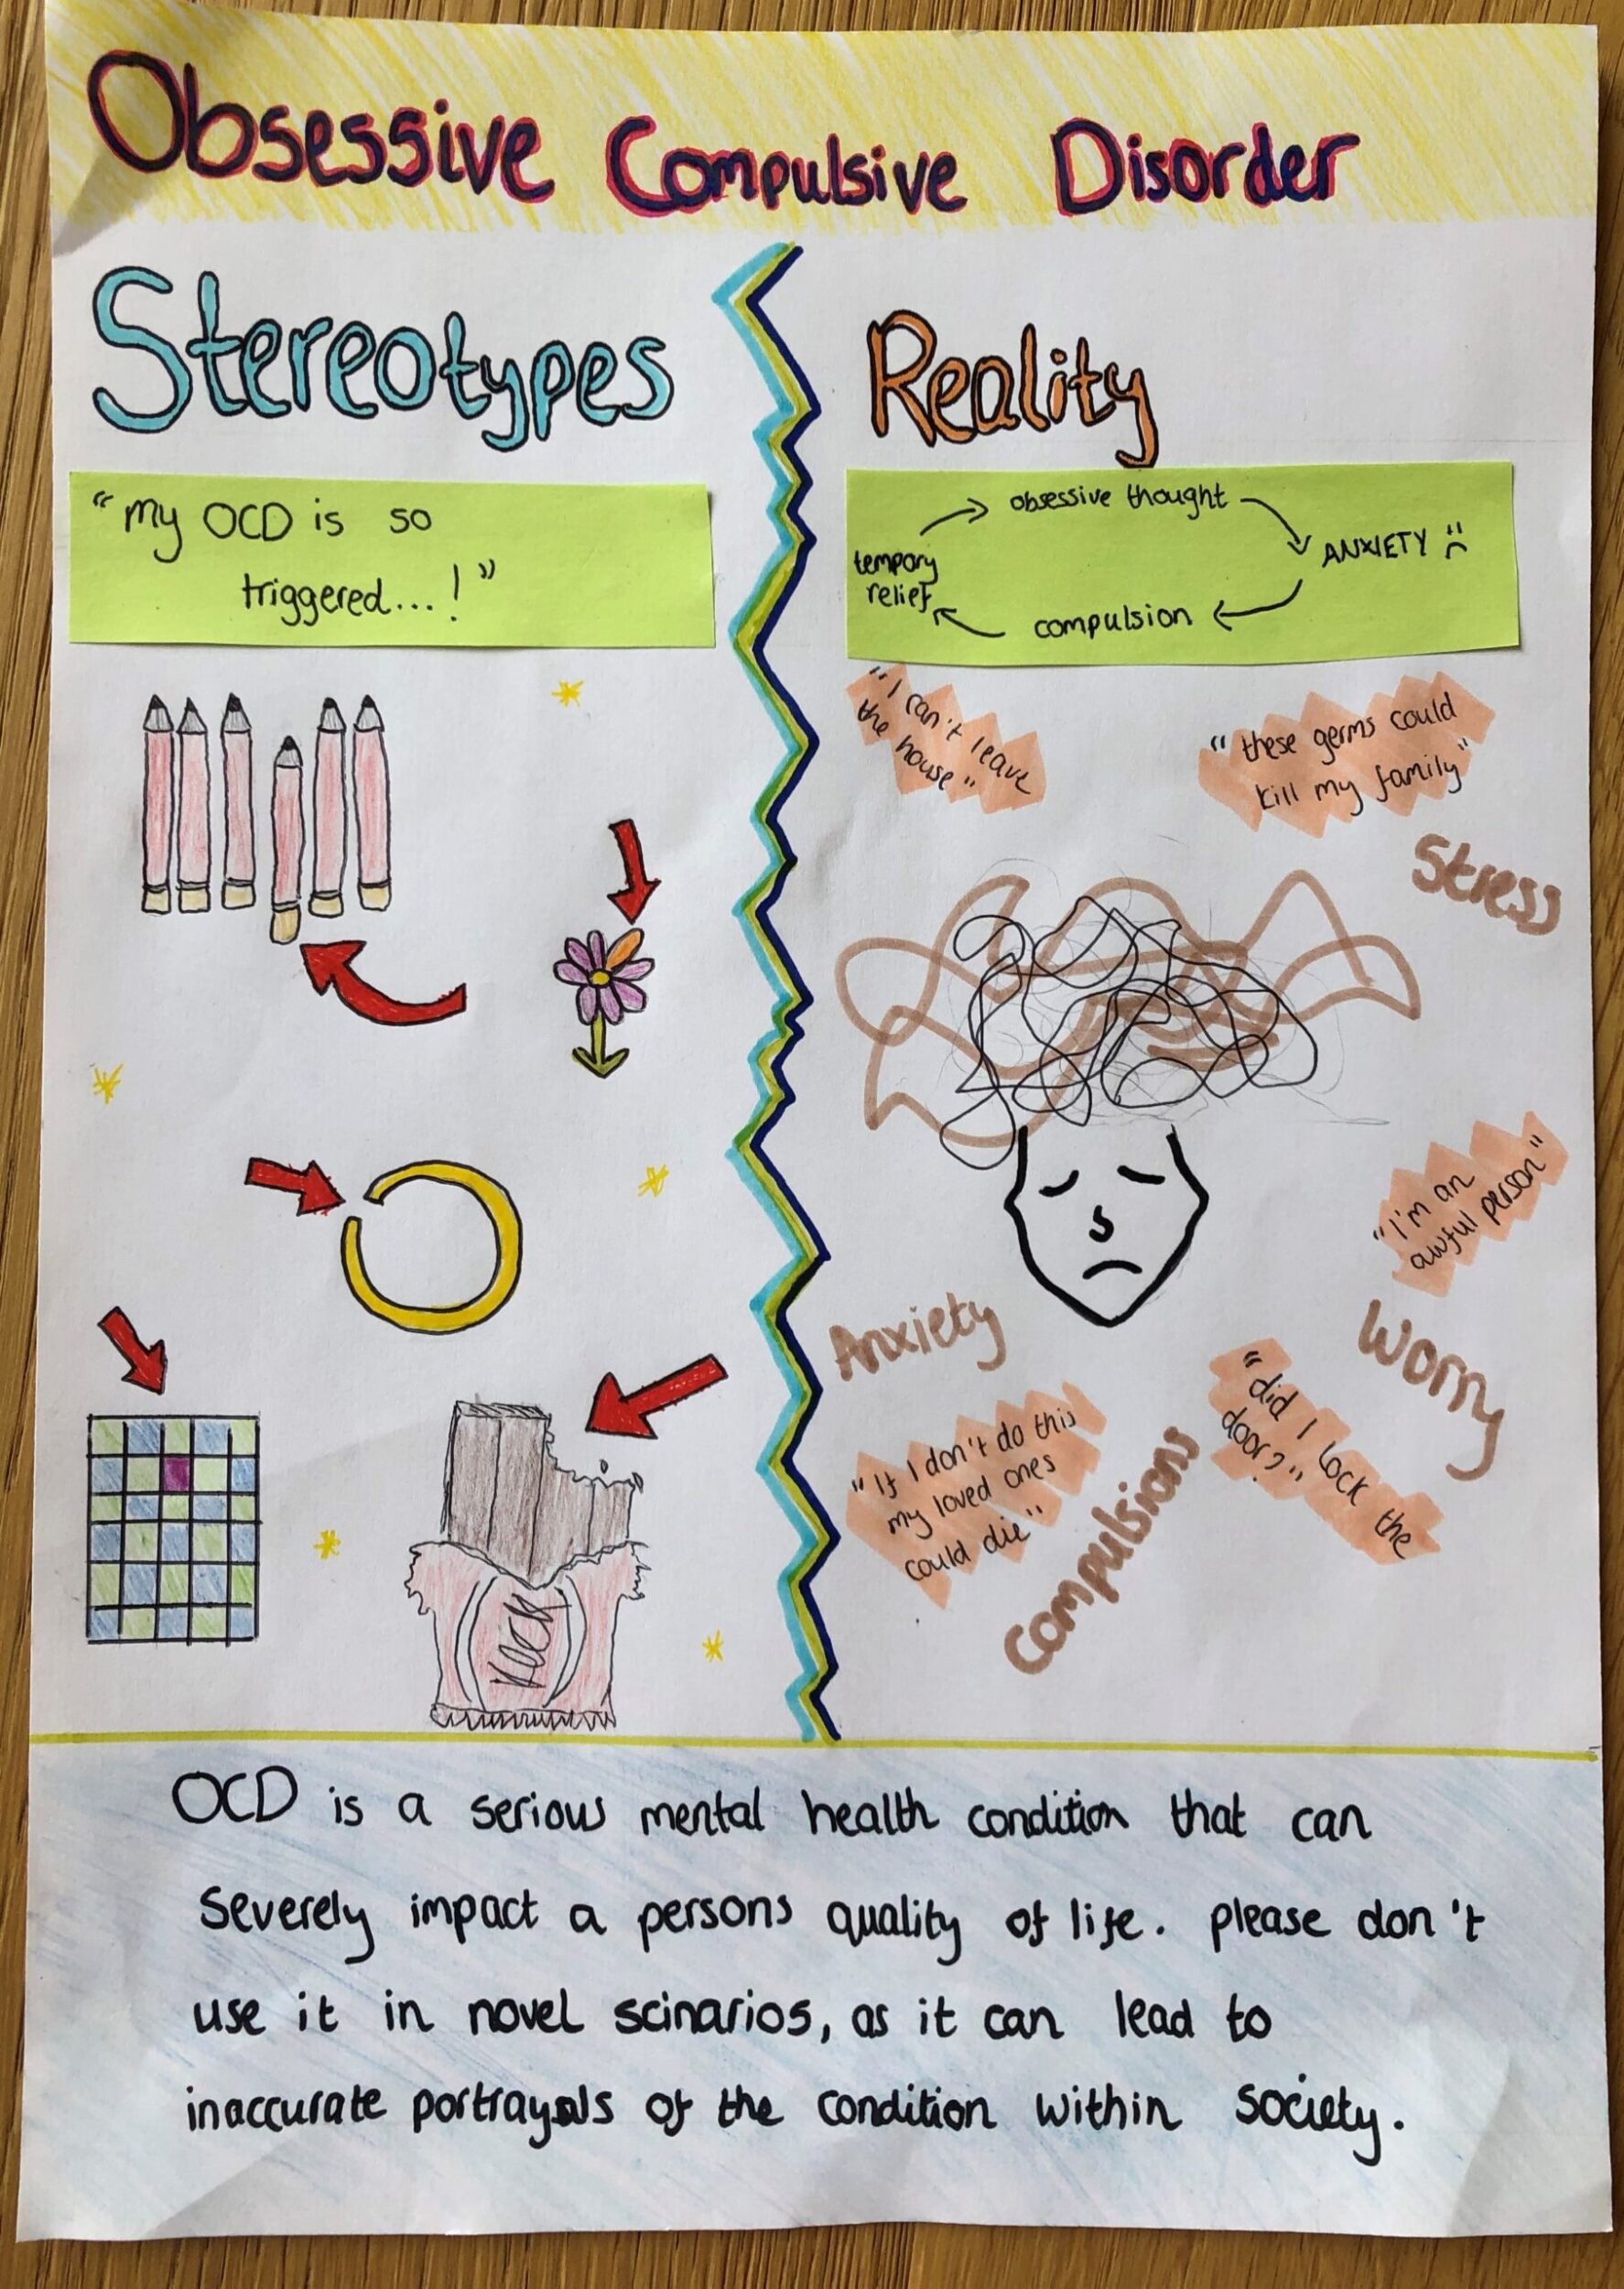 Obsessive Compulsive Disorder
Stereotypes
"my OCD is so
triggered...!"
Reality
obsessive thought
ANXIETY
compulsion
tempory
relief
"I can't leave
the house"
"these germs could
kill my family"
Stress
"I'm an
awful person"
Anxiety
Worry
"If I don't do this
my loved ones
could die"
Compulsions
"did I lock the
door?"
OCD is a serious mental health condition that can
severely impact a persons quality of life. please don't
use it in novel scinarios, as it can lead to
inaccurate portrayals of the condition within society.